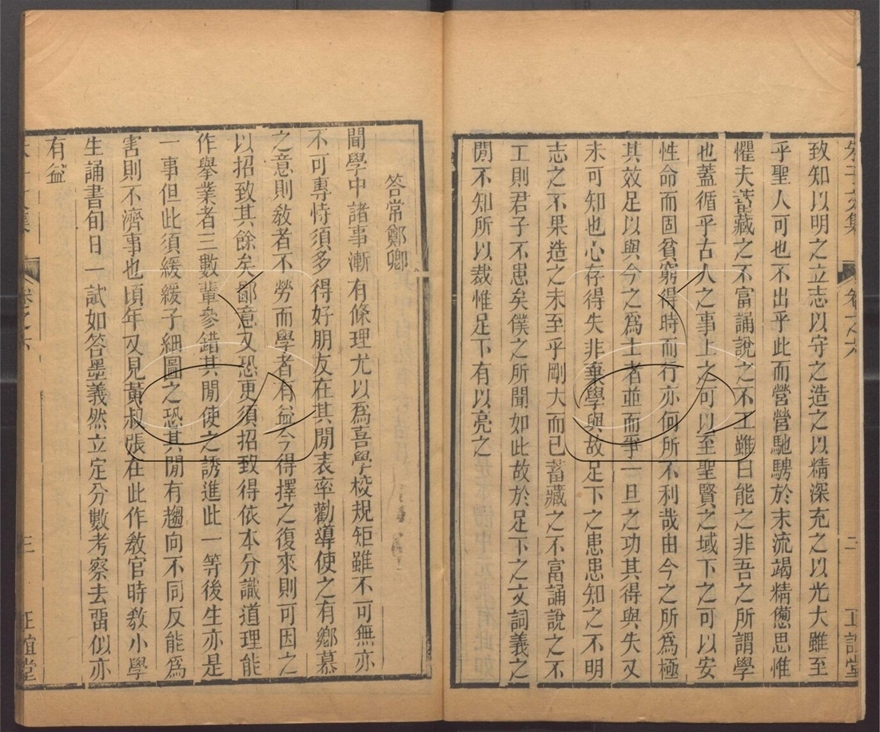 朱子文集 卷之六 二 正誼堂
致知以明之立志以守之造之以精深充之以光大雖至
乎聖人可也不出乎此而營營馳騁於末流竭精憊思惟
懼夫蓄藏之不富誦說之不工雖曰能之非吾之所謂學
也蓋循乎古人之事上之可以至聖賢之域下之可以安
性命而固貧窮得時而行亦何所不利哉由今之所為極
其效足以與今之為士者並而爭一旦之功其得與失又
未可知也心存得失非棄學與故足下之患患知之不明
志之不果造之未至乎剛大而已蓄藏之不富誦說之不
工則君子不患矣僕之所聞如此故於足下之文詞義之
閒不知所以裁惟足下有以亮之
答常鄭卿
閒學中諸事漸有條理尤以為喜學校規矩雖不可無亦
不可專恃須多得好朋友在其閒表率勸導使之有鄉慕
之意則教者不勞而學者有益今得擇之復來則可因之
以招致其餘矣鄙意又恐更須招致得依本分識道理能
作舉業者三數輩參錯其閒使之誘進此一等後生亦是
一事但此須緩緩子細圖之恐其閒有趨向不同反能為
害則不濟事也頃年又見黃叔張在此作教官時教小學
生誦書旬日一試如答墨義然立定分數考察去畱似亦
有益
卷之六 三 正誼堂